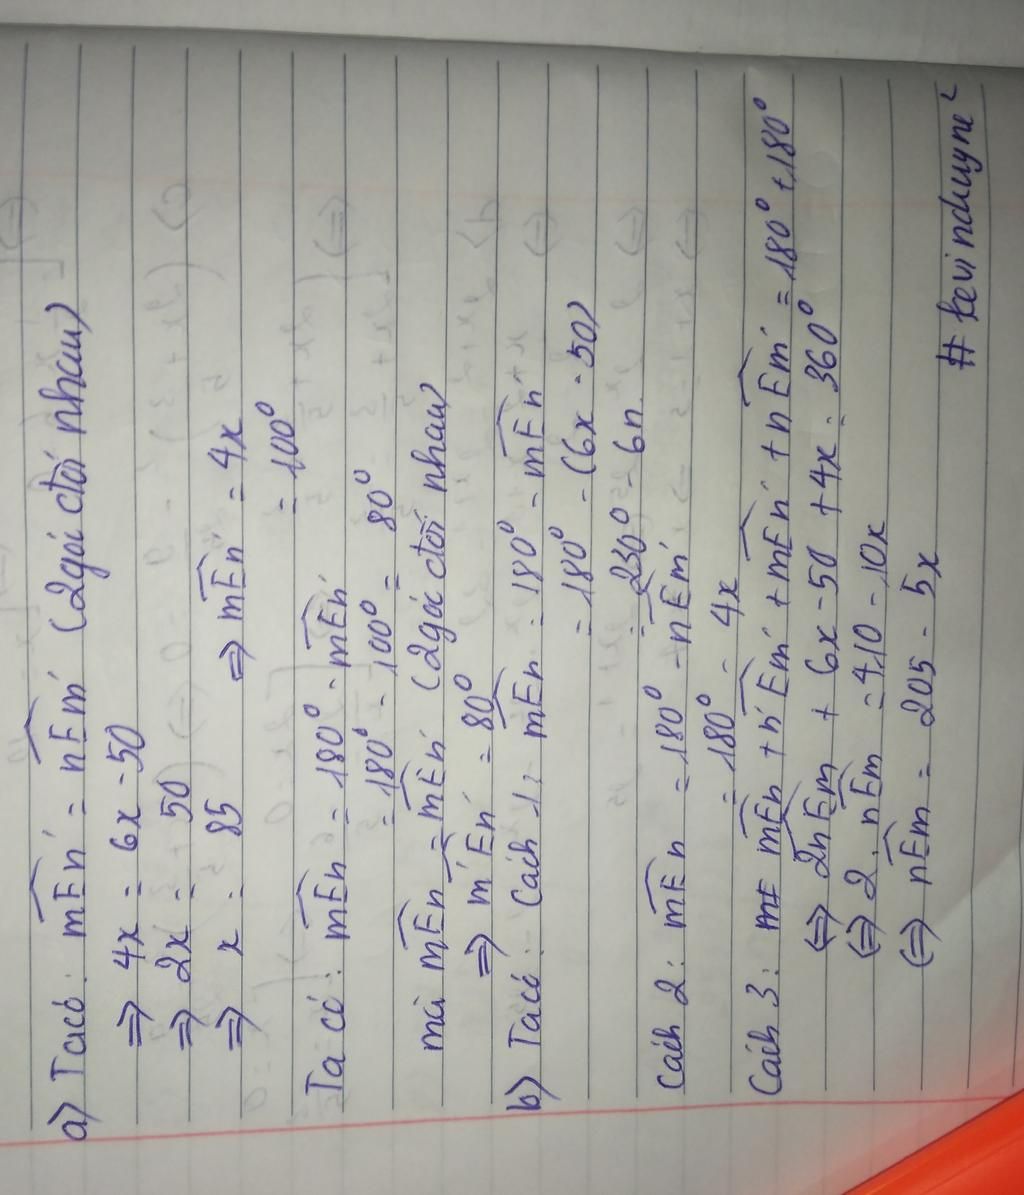 a) Ta có: mEn' = nEm' (2 góc đối nhau)
⇒ 4x = 6x - 50
⇒ 2x = 50
⇒ x = 25 ⇒ mEn' = 4x
= 100°
Ta có: mEn = 180° - mEn'
= 180° - 100° = 80°
mà mEn = m'En' (2 góc đối nhau)
⇒ m'En' = 80°
b) Ta có: Cách 1: mEn = 180° - mEn'
= 180° - (6x - 50)
= 230° - 6n.
Cách 2: mEn = 180° - nEm'
= 180° - 4x
Cách 3: mE mEn + n'Em' + mEn' + nEm' = 180° + 180°
⇔ 2nEm + 6x - 50 + 4x = 360°
⇔ 2. nEm = 410 - 10x
⇔ nEm = 205 - 5x